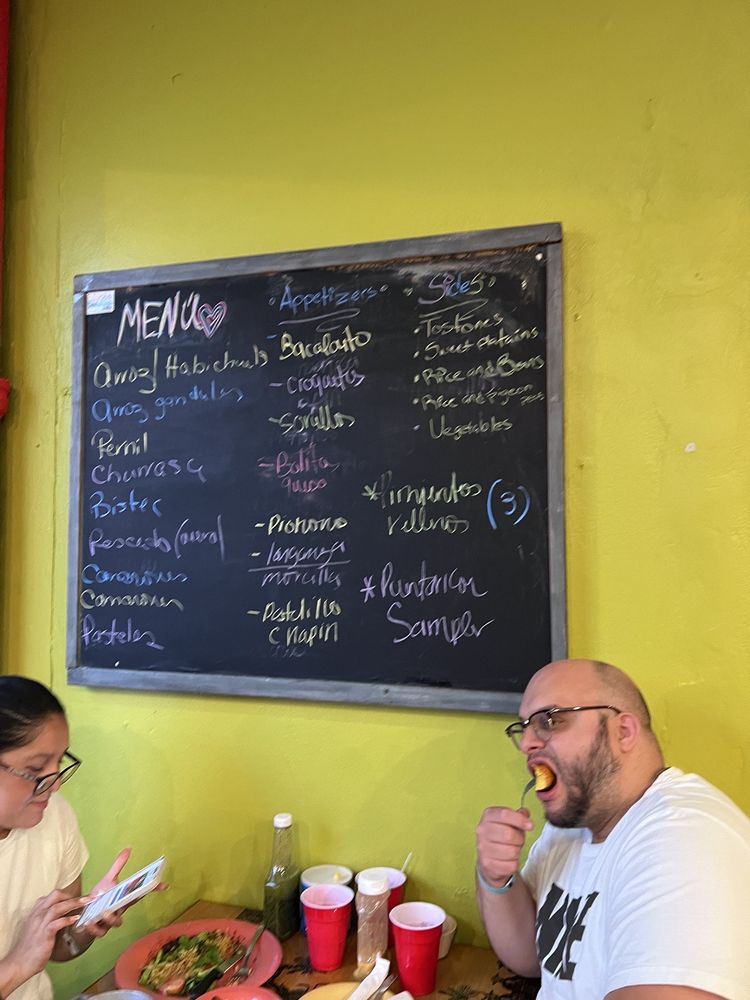 MENÚ
Arroz/Habichuela
Arroz gandules
Pernil
Churrasco
Bistec
Pescado
Camarones
Camarones
Pasteles
Appetizers
- Bacalaito
- Croquetas
- Sorullos
- Bolita
queso
- Pionono
- longaniza
morcilla
- Pastelillo
Chapin
Sides
• Tostones
• Sweet Platains
• Rice and Beans
• Rice and pigeon peas
• Vegetables
*Pimyentos (3)
rellenos
*
Sampler